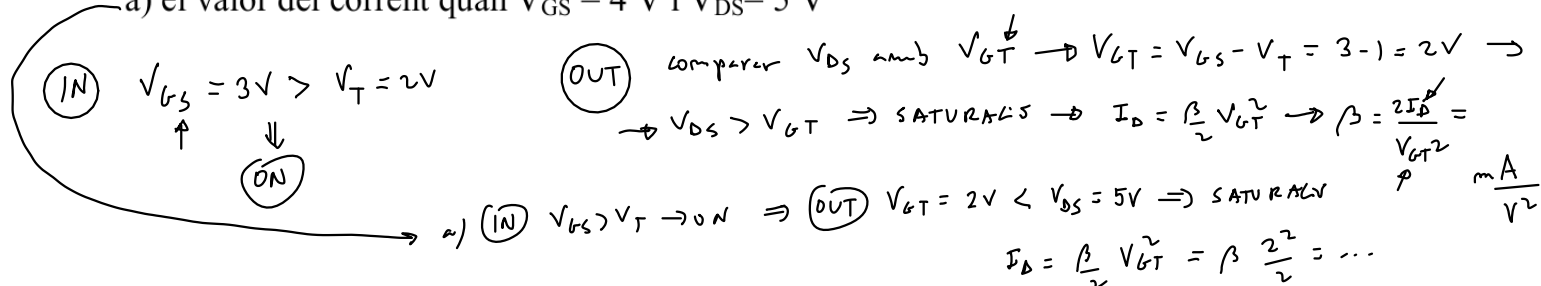 a) el valor del corrent quan V_GS = 4 V i V_DS= 5 V
IN V_GS = 3V > V_T = 2V
↑ ⇓
ON
OUT comparar V_DS amb V_GT → V_GT = V_GS - V_T = 3-1 = 2V →
→ V_DS > V_GT ⇒ SATURATS → I_D = β/2 V_GT² → β = 2I_D/V_GT² = mA/V²
a) IN V_GS > V_T → ON ⇒ OUT V_GT = 2V < V_DS = 5V ⇒ SATURATS
I_D = β/2 V_GT² = β 2²/2 = ...